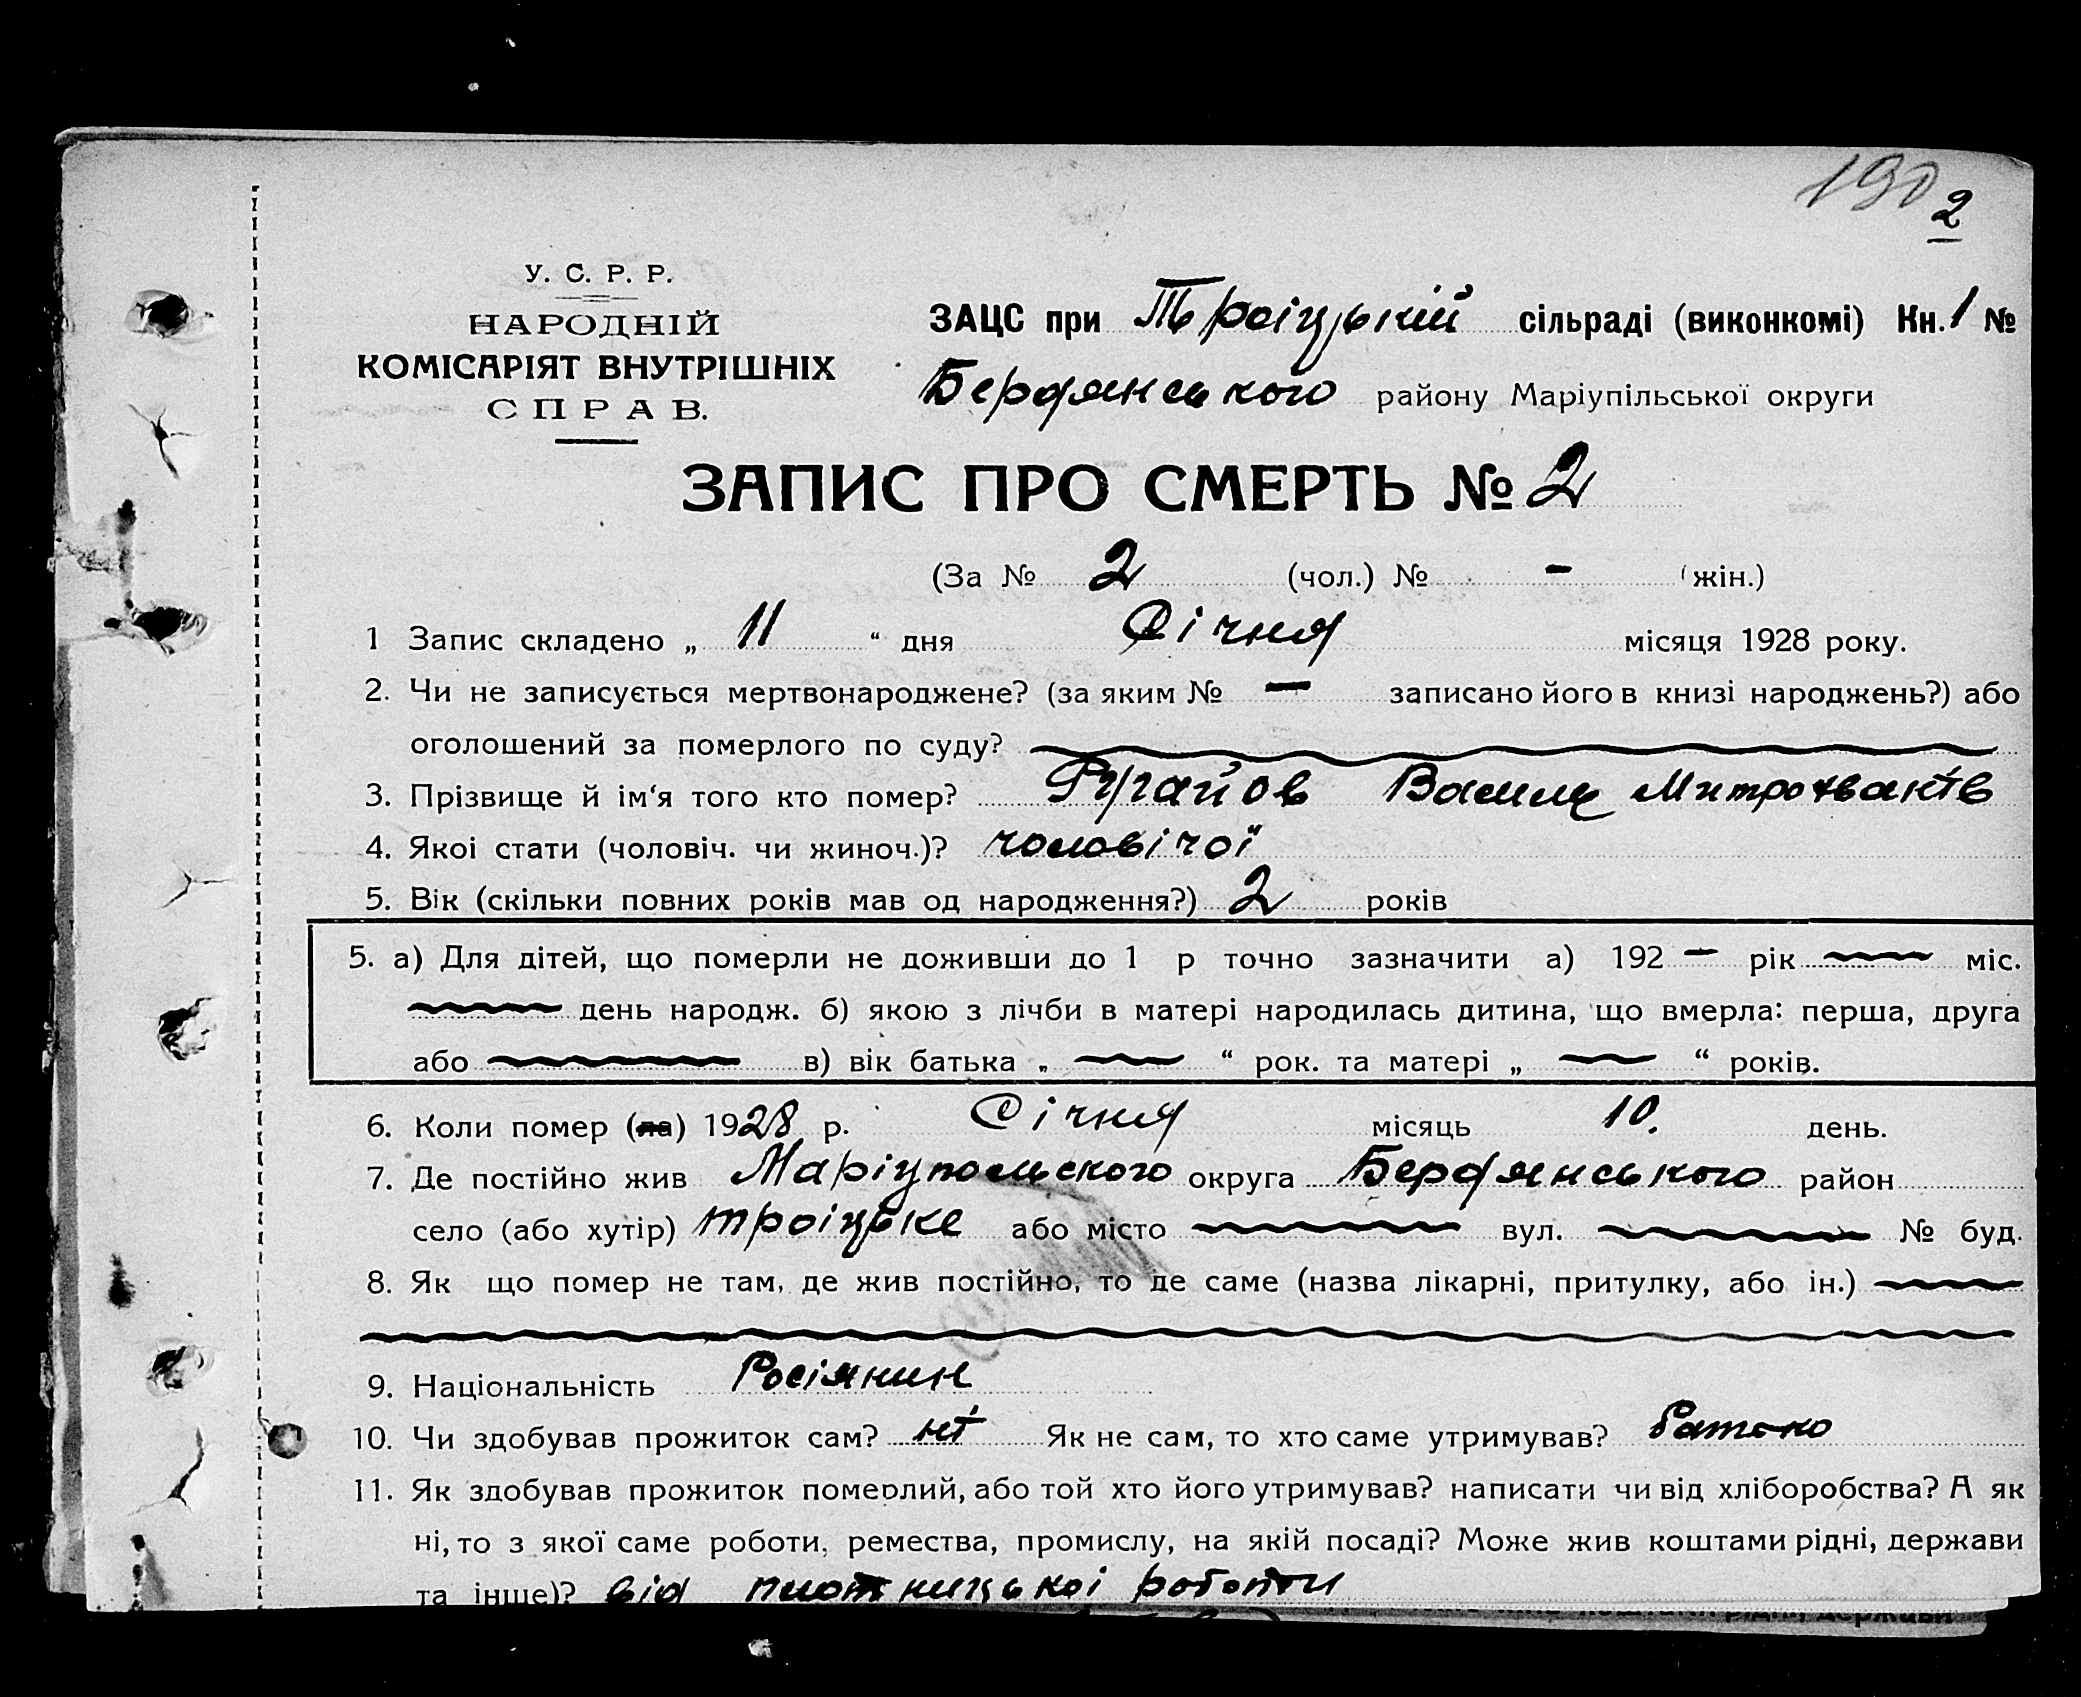 190
2
У. С. Р. Р.
НАРОДНІЙ
КОМІСАРІЯТ ВНУТРІШНІХ
СПРАВ.
ЗАЦС при Троіцькій сільраді (виконкомі) Кн. 1 №
Бердянського району Маріупільської округи
ЗАПИС ПРО СМЕРТЬ № 2
(За № 2 (чол.) № - (жін.)
1 Запис складено „ 11 “ дня Січня місяця 1928 року.
2. Чи не записується мертвонароджене? (за яким № — записано його в книзі народжень?) або
оголошений за померлого по суду?
3. Прізвище й ім'я того кто помер? Василь
4. Якоі стати (чоловіч. чи жиноч.)? чоловічої
5. Вік (скільки повних років мав од народження?) 2 років
5. а) Для дітей, що померли не доживши до 1 р точно зазначити а) 192 — рік — міс.
— день народж. б) якою з лічби в матері народилась дитина, що вмерла: перша, друга
або — в) вік батька „ — “ рок. та матері „ — “ років.
6. Коли помер (ла) 1928 р. Січня місяць 10. день.
7. Де постійно жив Маріупольского округа Бердянського район
село (або хутір) троіцьке або місто — вул. — № буд.
8. Як що помер не там, де жив постійно, то де саме (назва лікарні, притулку, або ін.) —
9. Національність Росіянин
10. Чи здобував прожиток сам? ні Як не сам, то хто саме утримував?
11. Як здобував прожиток померлий, або той хто його утримував? написати чи від хліборобства? А як
ні, то з якої саме роботи, ремества, промислу, на якій посаді? Може жив коштами рідні, держави
та інше)? від плотницькоі роботи